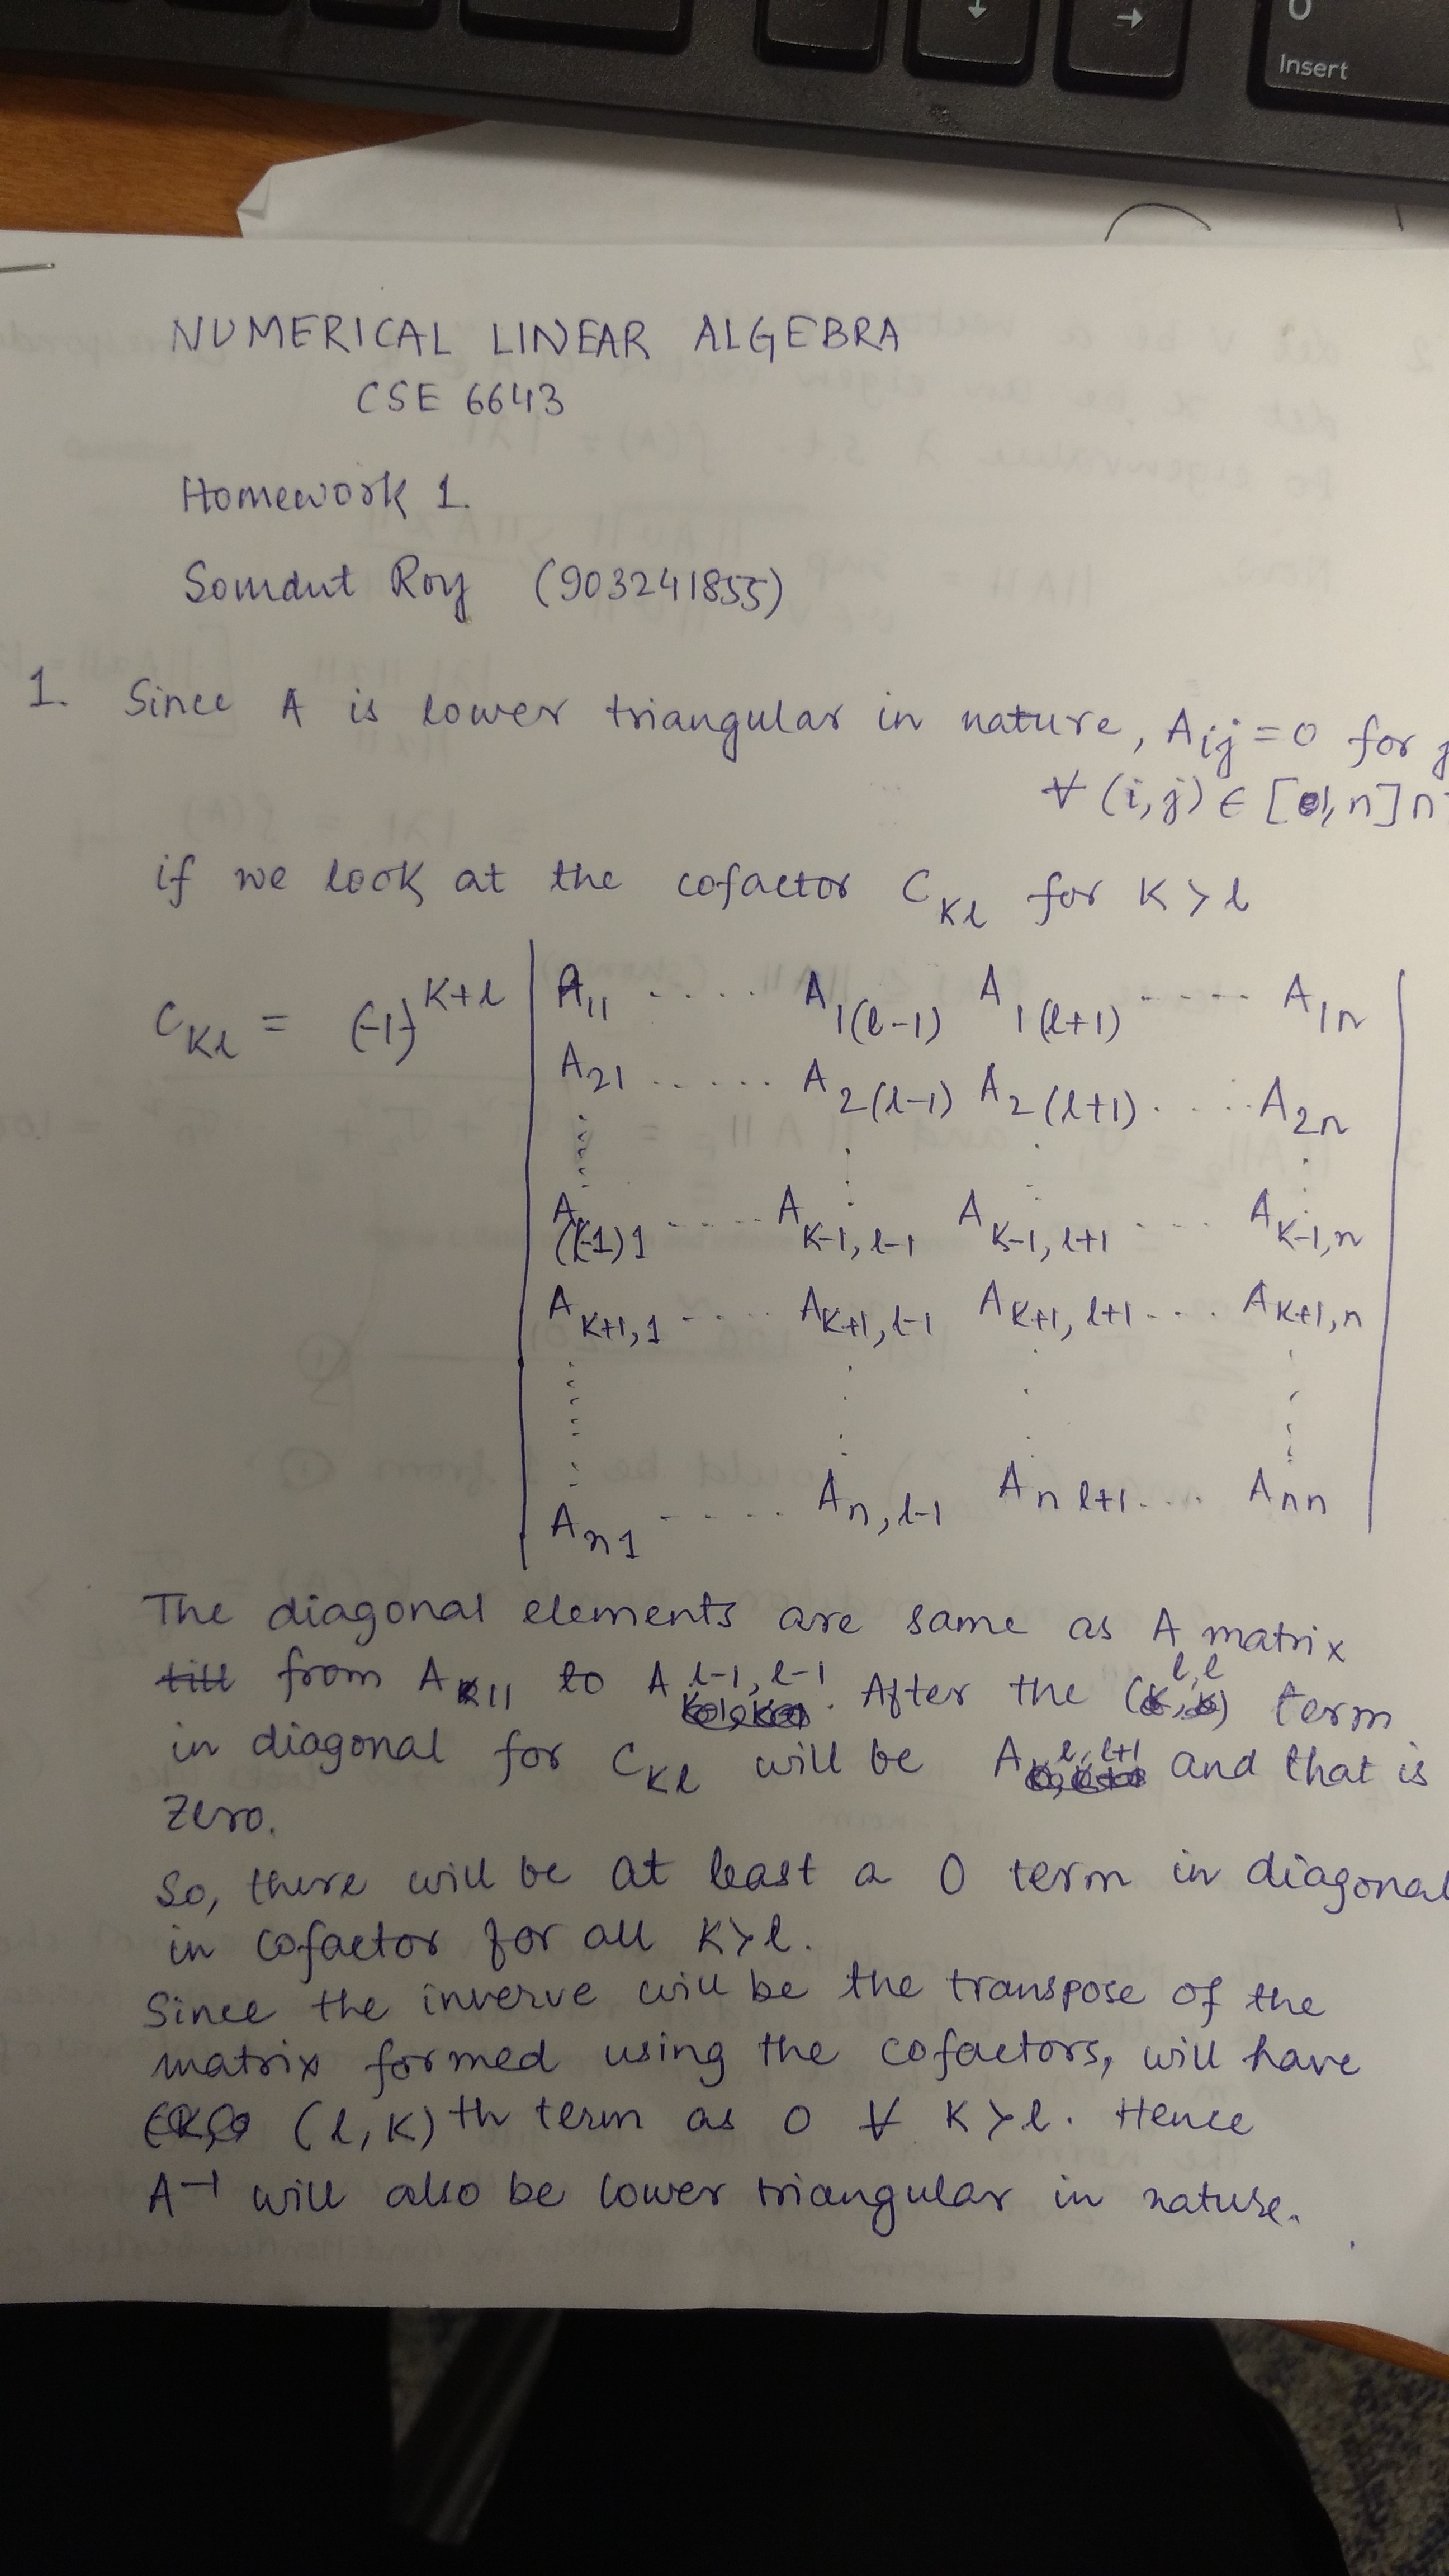 ↓
→
0
Insert
NUMERICAL LINEAR ALGEBRA
CSE 6643
Homework 1.
Somdut Roy (903241855)
1. Since A is lower triangular in nature, A_ij = 0 for j
∀ (i,j) ∈ [1,n] n
if we look at the cofactor C_Kl for K > l
C_Kl = (-1)^K+l | A_11 ..... A_1(l-1) A_1(l+1) ..... A_1n |
A_21 ...... A_2(l-1) A_2(l+1) ..... A_2n
A_(K-1)1 ..... A_K-1,l-1 A_K-1,l+1 .... A_K-1,n
A_K+1,1 ..... A_K+1,l-1 A_K+1,l+1 ... A_K+1,n
A_n1 ..... A_n,l-1 A_n l+1 .... A_nn
The diagonal elements are same as A matrix
till from A_11 to A_l-1,l-1. After the (l,l) term
in diagonal for C_Kl will be A_l,l+1 and that is
zero.
So, there will be at least a 0 term in diagonal
in cofactor for all K>l.
Since the inverve will be the transpose of the
matrix formed using the cofactors, will have
(l,K)th term as 0 ∀ K>l. Hence
A^-1 will also be lower triangular in nature.